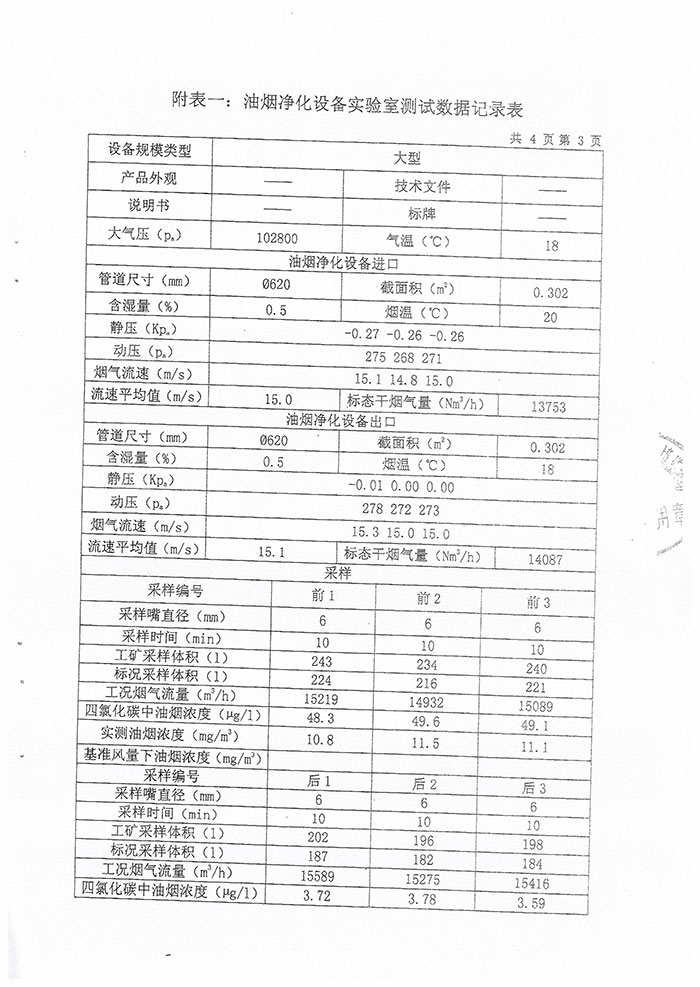 附表一：油烟净化设备实验室测试数据记录表
共 4 页第 3 页
设备规模类型 大型
产品外观 —— 技术文件 ——
说明书 —— 标牌 ——
大气压（pₐ） 102800 气温（℃） 18
油烟净化设备进口
管道尺寸（mm） Ø620 截面积（m²） 0.302
含湿量（%） 0.5 烟温（℃） 20
静压（Kpₐ） -0.27 -0.26 -0.26
动压（pₐ） 275 268 271
烟气流速（m/s） 15.1 14.8 15.0
流速平均值（m/s） 15.0 标态干烟气量（Nm³/h） 13753
油烟净化设备出口
管道尺寸（mm） Ø620 截面积（m²） 0.302
含湿量（%） 0.5 烟温（℃） 18
静压（Kpₐ） -0.01 0.00 0.00
动压（pₐ） 278 272 273
烟气流速（m/s） 15.3 15.0 15.0
流速平均值（m/s） 15.1 标态干烟气量（Nm³/h） 14087
采样
采样编号 前1 前2 前3
采样嘴直径（mm） 6 6 6
采样时间（min） 10 10 10
工矿采样体积（l） 243 234 240
标况采样体积（l） 224 216 221
工况烟气流量（m³/h） 15219 14932 15089
四氯化碳中油烟浓度（μg/l） 48.3 49.6 49.1
实测油烟浓度（mg/m³） 10.8 11.5 11.1
基准风量下油烟浓度（mg/m³）
采样编号 后1 后2 后3
采样嘴直径（mm） 6 6 6
采样时间（min） 10 10 10
工矿采样体积（l） 202 196 198
标况采样体积（l） 187 182 184
工况烟气流量（m³/h） 15589 15275 15416
四氯化碳中油烟浓度（μg/l） 3.72 3.78 3.59
用章